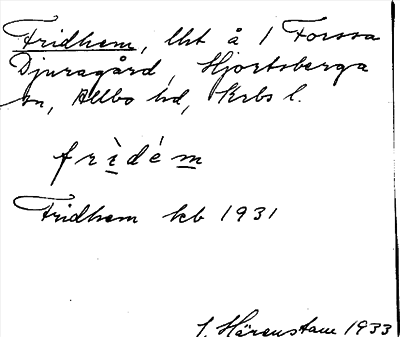 Fridhem, lht å 1 Forssa
Djuragård, Hjortsberga
sn, Allbo hd, Krbs l.
frìdém
Fridhem kb 1931
J. Härenstam 1933